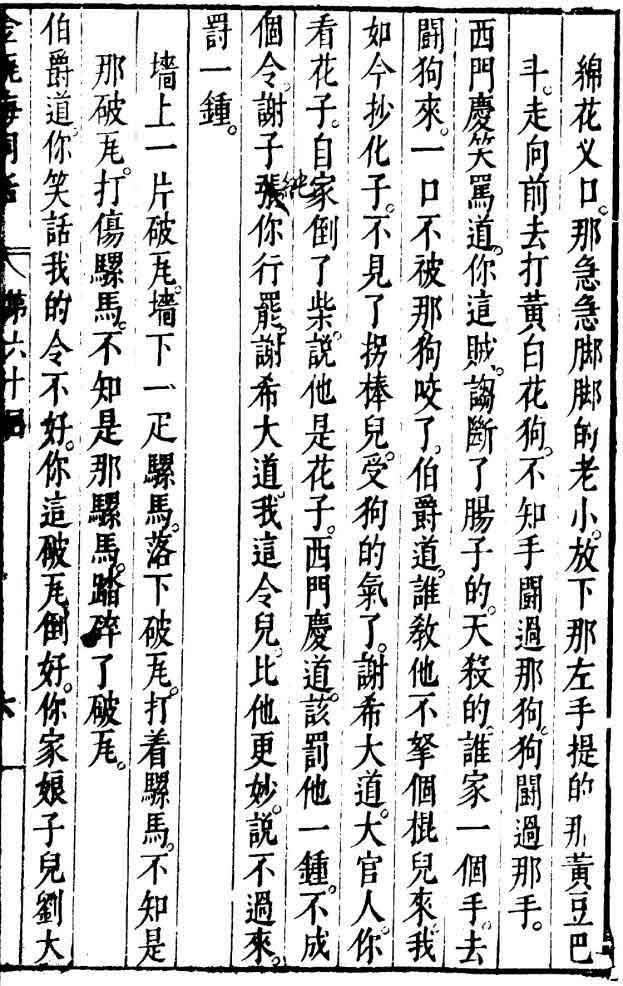 綿花乂口。那急急脚脚的老小。放下那左手提的那黃豆巴
斗。走向前去打黃白花狗。不知手鬪過那狗。狗鬪過那手。
西門慶笑罵道。你這賊。謅斷了腸子的。天殺的。誰家一個手。去
鬪狗來。一口不被那狗咬了。伯爵道。誰敎他不拏個棍兒來。我
如今抄化子。不見了拐棒兒。受狗的氣了。謝希大道。大官人。你
看花子。自家倒了柴。說他是花子。西門慶道。該罰他一鍾。不成
個令。謝子張你行罷。謝希大道。我這令兒。比他更妙。說不過來。
罰一鍾。
墻上一片破瓦。墻下一疋騾馬。落下破瓦。打着騾馬。不知是
那破瓦。打傷騾馬。不知是那騾馬。踏碎了破瓦。
伯爵道。你笑話我的令不好。你這破瓦倒好。你家娘子兒劉大
第六十
六